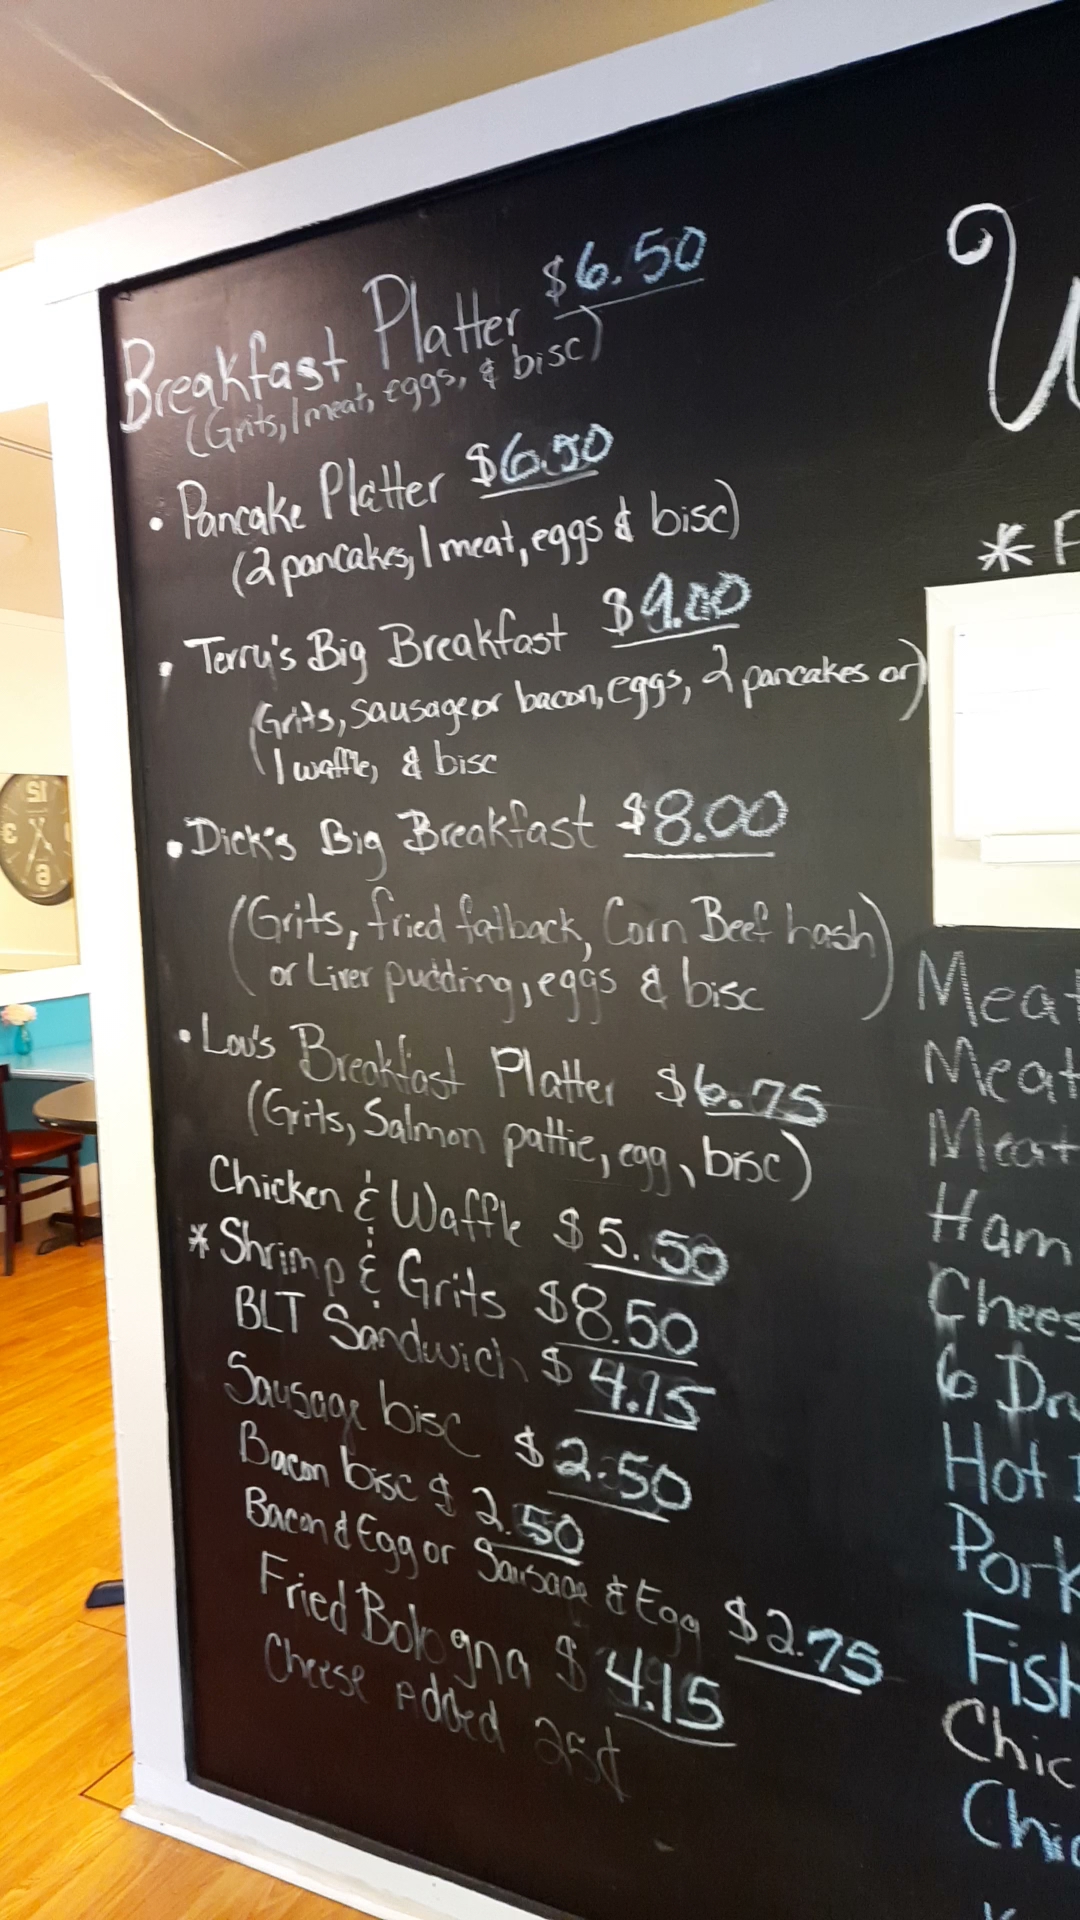 Breakfast Platter $6.50
(Grits, 1 meat, eggs, & bisc)
• Pancake Platter $6.50
(2 pancakes, 1 meat, eggs & bisc)
• Terry's Big Breakfast $9.00
(Grits, sausage or bacon, eggs, 2 pancakes or)
1 waffle, & bisc
• Dick's Big Breakfast $8.00
(Grits, fried fatback, Corn Beef hash)
or Liver pudding, eggs & bisc
• Lou's Breakfast Platter $6.75
(Grits, Salmon pattie, egg, bisc)
Chicken & Waffle $5.50
* Shrimp & Grits $8.50
BLT Sandwich $4.15
Sausage bisc $2.50
Bacon bisc $2.50
Bacon & Egg or Sausage & Egg $2.75
Fried Bologna $4.15
Cheese Added 25¢
Meat
Meat
Meat
Ham
Chees
6 
Hot
Pork
Fish
Chic
Chic